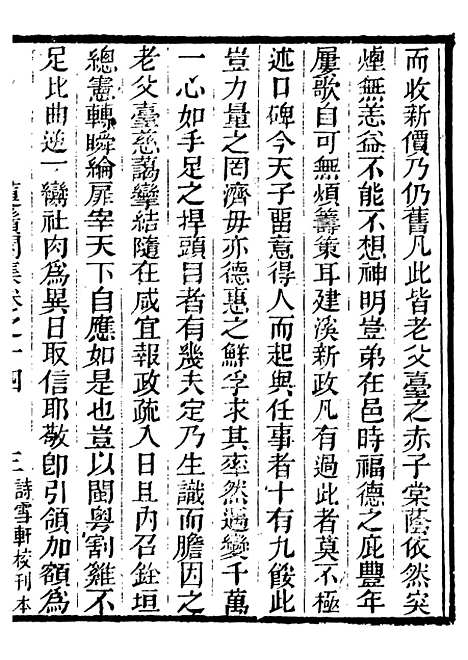 而收新價乃仍舊凡此皆老父臺之赤子棠蔭依然突
煙無恙益不能不想神明豈弟在邑時福德之庇豐年
屢歌自可無煩籌策耳建溪新政凡有過此者莫不極
述口碑今天子留意得人而起與任事者十有九餒此
豈力量之罔濟毋亦德惠之鮮孚求其率然遇變千萬
一心如手足之捍頭目者有幾夫定乃生識而膽因之
老父臺慈藹攣結隨在咸宜報政疏入日且內召銓垣
總憲轉瞬綸扉宰天下自應如是也豈以閩粵割雞不
足比曲逆一臠社肉為異日取信耶敬卽引領加額為
集卷之十四
三
詩雪軒校刊本